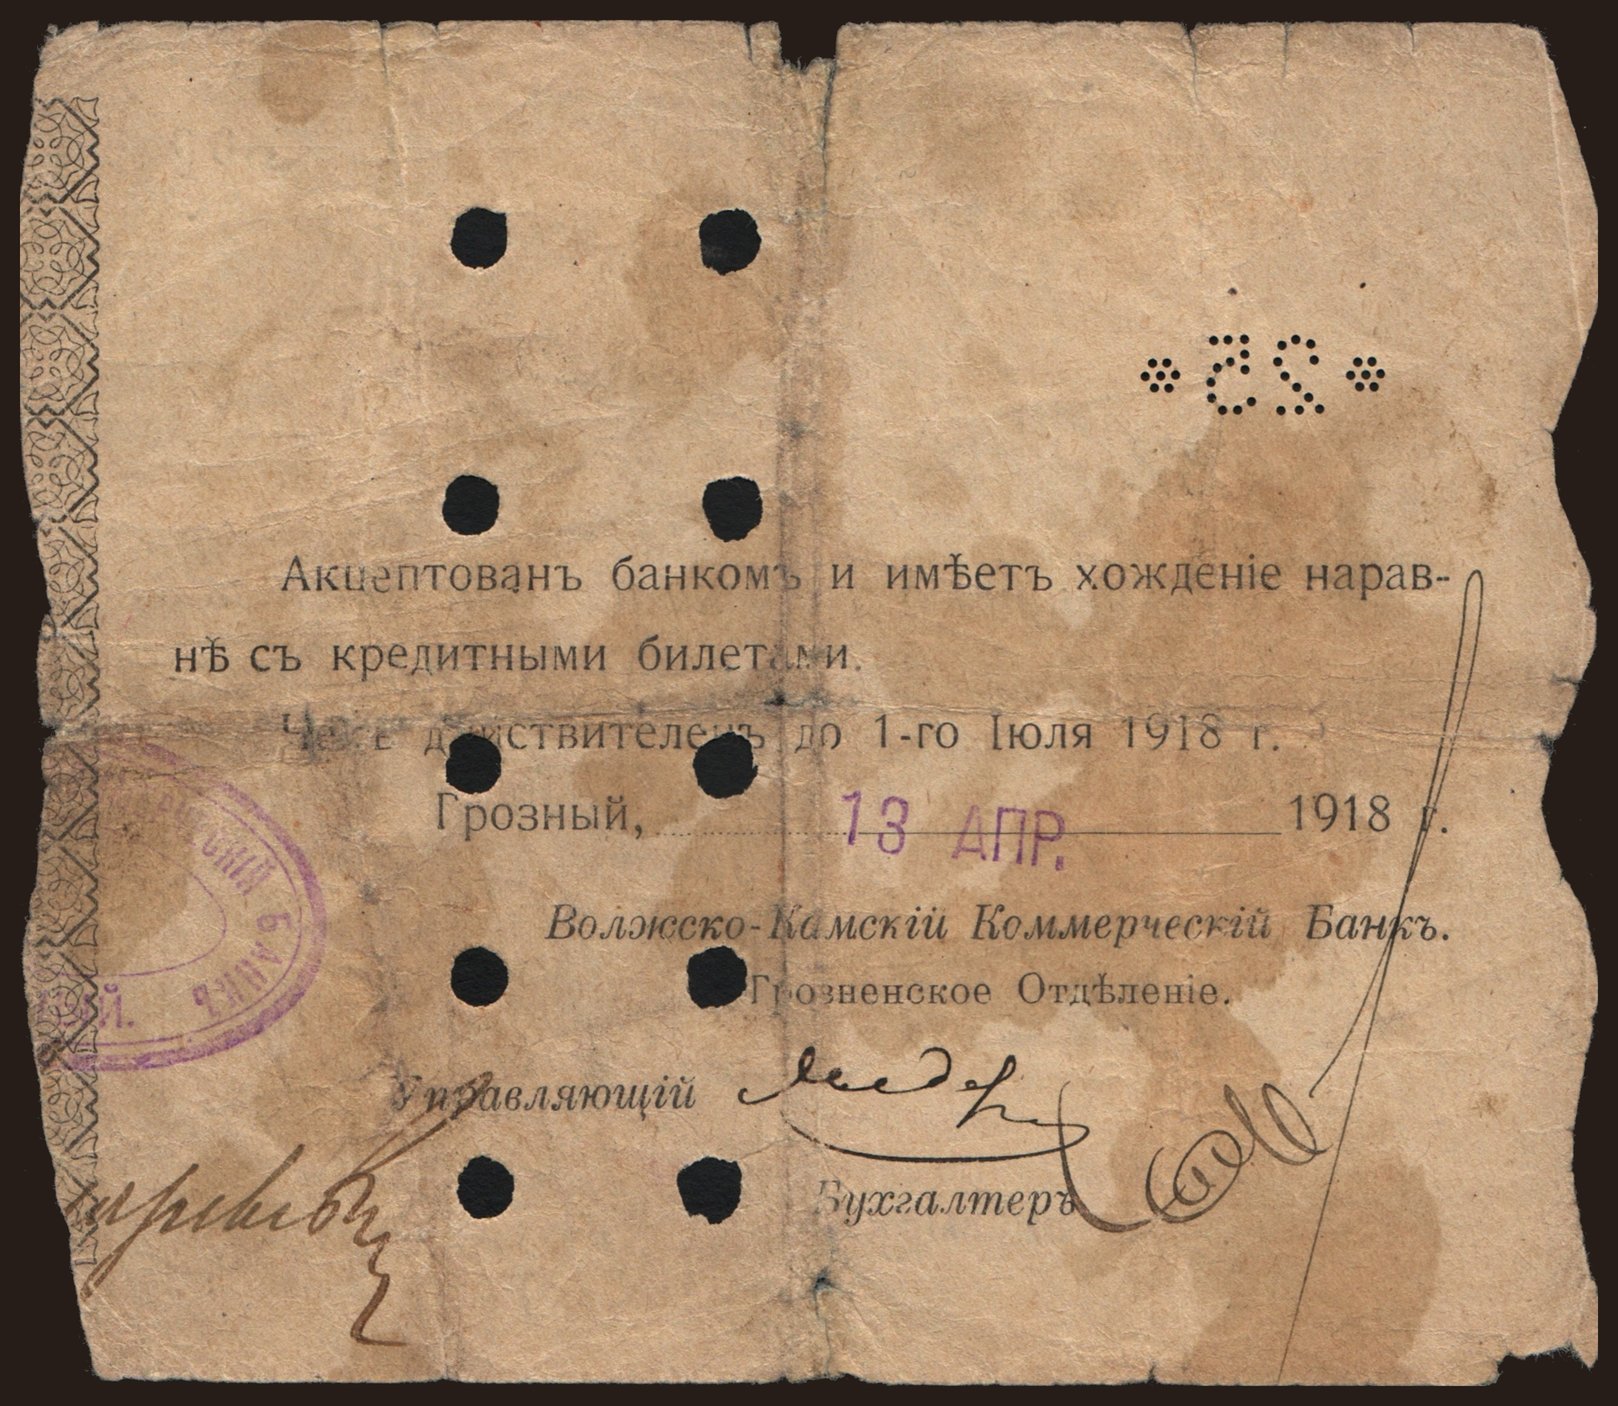 25
Акцептованъ банкомъ и имѣетъ хожденіе нарав-
нѣ съ кредитными билетами.
Чекъ дѣйствителенъ до 1-го Іюля 1918 г.
Грозный, 13 АПР. 1918 г.
Волжско-Камскій Коммерческій Банкъ.
Грозненское Отдѣленіе.
Управляющій
Бухгалтеръ
БАНКЪ